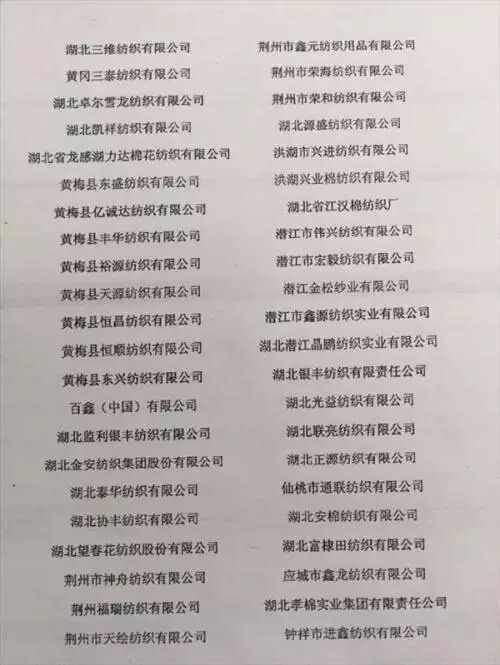 湖北三维纺织有限公司
黄冈三泰纺织有限公司
湖北卓尔雪龙纺织有限公司
湖北凯祥纺织有限公司
湖北省龙感湖力达棉花纺织有限公司
黄梅县东盛纺织有限公司
黄梅县亿诚达纺织有限公司
黄梅县丰华纺织有限公司
黄梅县裕源纺织有限公司
黄梅县天源纺织有限公司
黄梅县恒昌纺织有限公司
黄梅县恒顺纺织有限公司
黄梅县东兴纺织有限公司
百鑫（中国）有限公司
湖北监利银丰纺织有限公司
湖北金安纺织集团股份有限公司
湖北泰华纺织有限公司
湖北协丰纺织有限公司
湖北望春花纺织股份有限公司
荆州市神舟纺织有限公司
荆州福瑞纺织有限公司
荆州市天绘纺织有限公司
荆州市鑫元纺织用品有限公司
荆州市荣海纺织有限公司
荆州市荣和纺织有限公司
湖北源盛纺织有限公司
洪湖市兴进纺织有限公司
洪湖兴业棉纺织有限公司
湖北省江汉棉纺织厂
潜江市伟兴纺织有限公司
潜江市宏毅纺织有限公司
潜江金松纱业有限公司
潜江市鑫源纺织实业有限公司
湖北潜江晶鹏纺织实业有限公司
湖北银丰纺织有限责任公司
湖北光益纺织有限公司
湖北联亮纺织有限公司
湖北正源纺织有限公司
仙桃市通联纺织有限公司
湖北安棉纺织有限公司
湖北富棣田纺织有限公司
应城市鑫龙纺织有限公司
湖北孝棉实业集团有限责任公司
钟祥市进鑫纺织有限公司